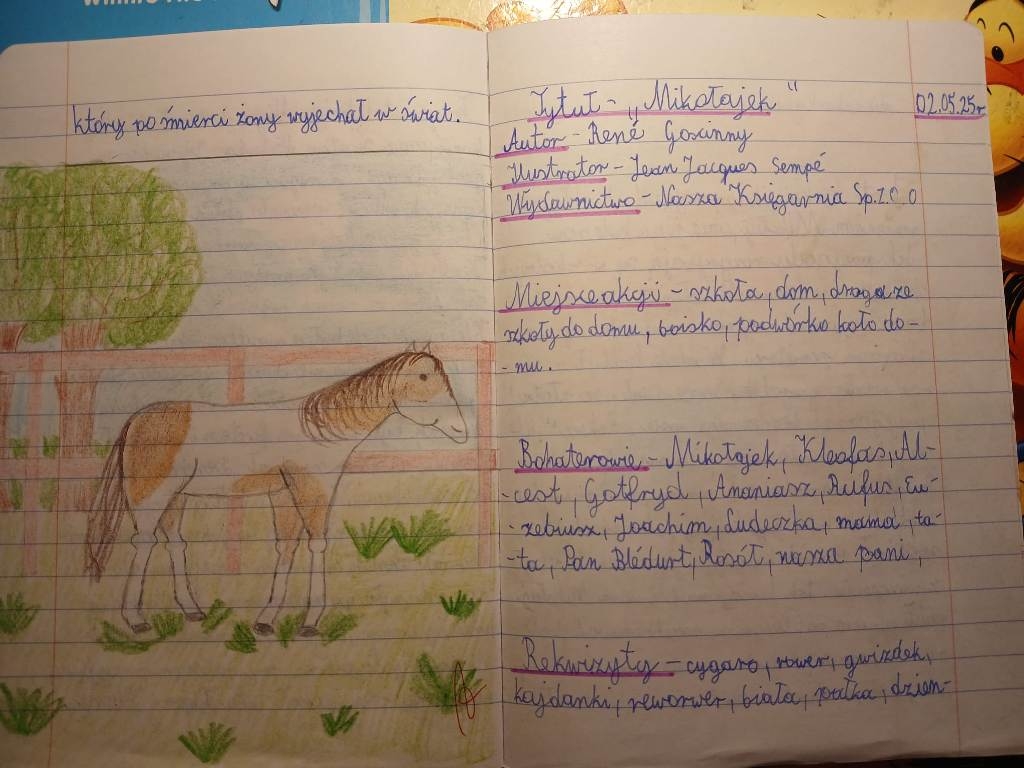 który po śmierci żony wyjechał w świat.
Tytuł - „Mikołajek“
02.05.25r
Autor - René Gosinny
Ilustrator - Jean Jacques Sempé
Wydawnictwo - Nasza Księgarnia Sp.z.o.o
Miejsce akcji - szkoła, dom, droga ze
szkoły do domu, boisko, podwórko koło do-
- mu.
Bohaterowie - Mikołajek, Kleofas, Al-
- cest, Gotfryd, Ananiasz, Rufus, Eu-
- zebiusz, Joachim, Ludeczka, mama, ta-
- ta, Pan Blédurt, Rosół, nasza pani,
Rekwizyty - cygaro, rower, gwizdek,
kajdanki, reworwer, biała, pałka, dzien-